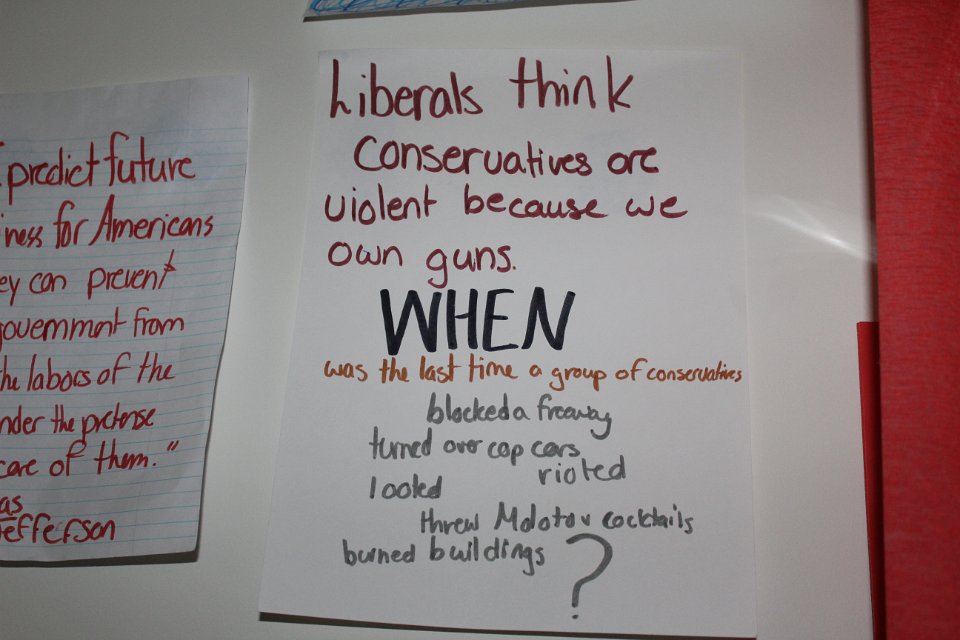 predict future
iness for Americans
ey can prevent
government from
the labors of the
nder the pretense
care of them."
as
Jefferson
Liberals think
Conservatives are
violent because we
own guns.
WHEN
was the last time a group of conservatives
blocked a freeway
turned over cop cars
rioted
looted
threw Molotov cocktails
burned buildings
?